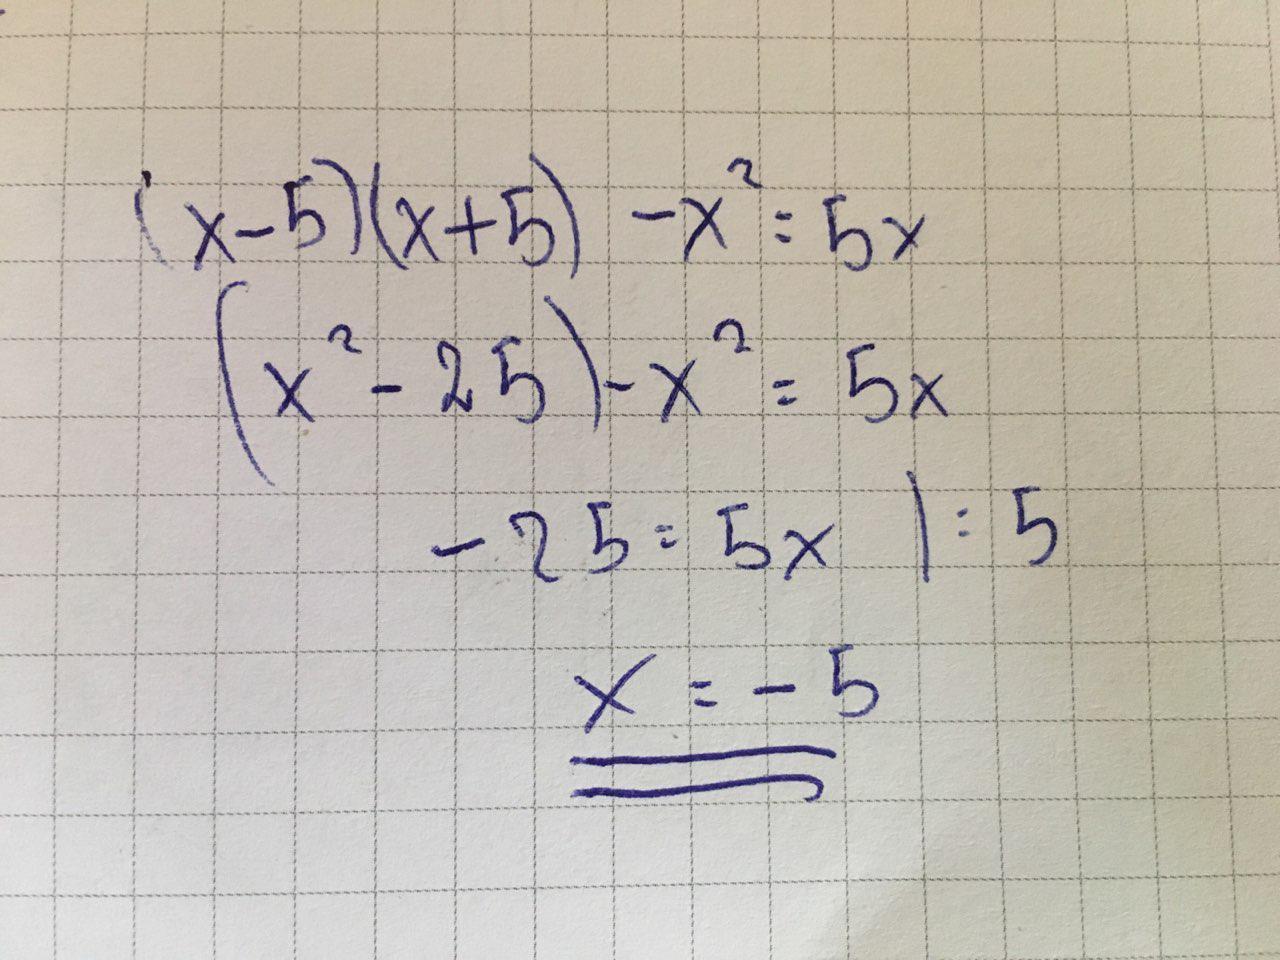 (x-5)(x+5) -x² = 5x
(x² - 25) - x² = 5x
-25 = 5x |:5
x = -5